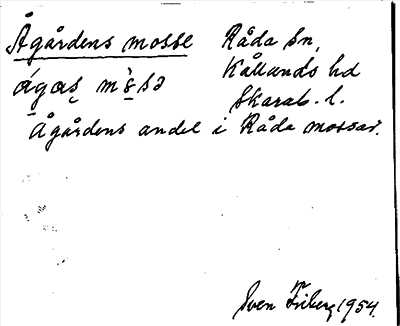 Ågårdens mosse Råda sn,
Kållands hd
Skarab. l.
Ågårdens andel i Råda mossar.
Sven Friberg 1954.